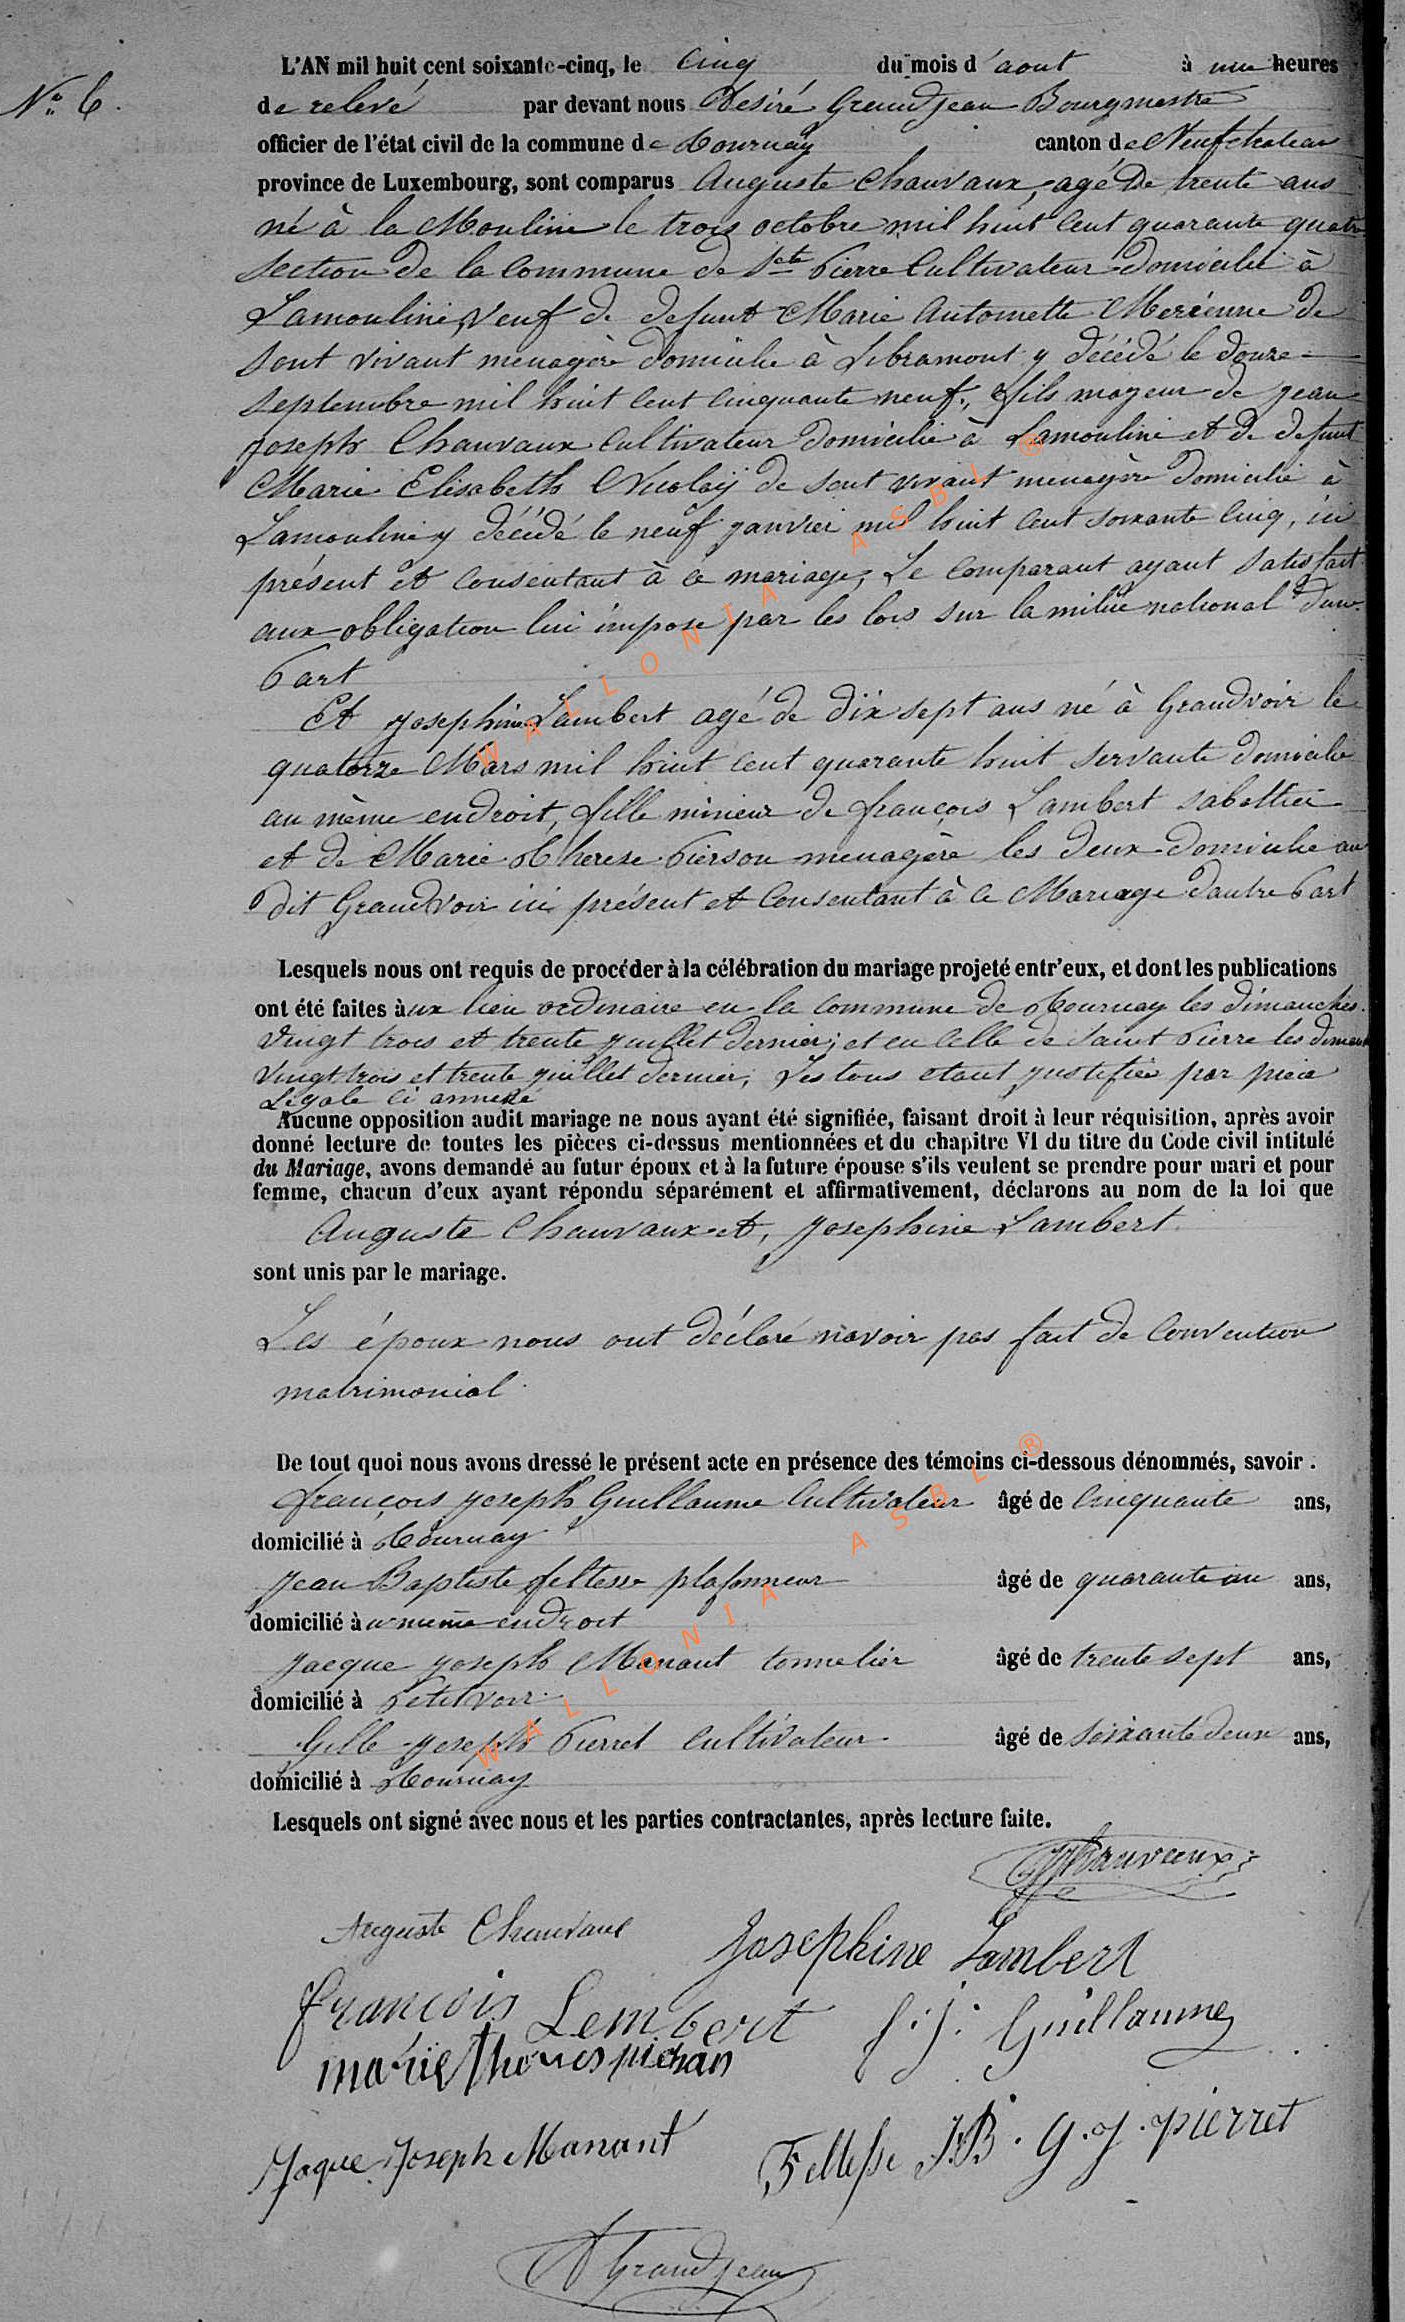 N° 6.
L'AN mil huit cent soixante-cinq, le cinq du mois d'aout à une heures
de relevé par devant nous Désiré Grandjean Bourgmestre
officier de l'état civil de la commune de Tournay canton de Neufchateau
province de Luxembourg, sont comparus Auguste Chauvaux, agé de trente ans
né à la Mouline le trois octobre mil huit cent quarante quatre
section de la commune de Ste Pierre Cultivateur domicilié à
Lamouline, veuf de defunt Marie Antoinette de
sont vivant menagère domicilie à Libramont y décédé le douze
septembre mil huit cent cinquante neuf, fils majeur de jean
joseph Chauvaux cultivateur domicilié à Lamouline et de defunt
Marie Elisabeth Nicolaÿ de sont vivant menagère domicilié à
Lamouline y décédé le neuf janvier mil huit cent soixante cinq, ici
présent et consentant à ce mariage, Le comparant ayant satisfait
aux obligation lui impose par les lois sur la milice national dune
Part
Et Josephine Lambert agé de dix sept ans né à Grandvoir le
quatorze Mars mil huit cent quarante huit servante domicilie
au même endroit, fille mineur de françois Lambert sabottier
et de Marie Therese Pierson menagère les deux domicilie au
dit Grandvoir ici présent et consentant à ce Mariage dautre Part
Lesquels nous ont requis de procéder à la célébration du mariage projeté entr'eux, et dont les publications
ont été faites aux lieu ordinaire en la commune de Tournay les dimanches
vingt trois et trente juillet dernier; et en celle de saint Pierre les
vingt trois et trente juillet dernier, Les tous etant justifié par piece
Légale ci annexe
Aucune opposition audit mariage ne nous ayant été signifiée, faisant droit à leur réquisition, après avoir
donné lecture de toutes les pièces ci-dessus mentionnées et du chapitre VI du titre du Code civil intitulé
du Mariage, avons demandé au futur époux et à la future épouse s'ils veulent se prendre pour mari et pour
femme, chacun d'eux ayant répondu séparément et affirmativement, déclarons au nom de la loi que
Auguste Chauvaux et, Josephine Lambert
sont unis par le mariage.
Les époux nous ont déclaré navoir pas fait de Convention
matrimonial.
De tout quoi nous avons dressé le présent acte en présence des témoins ci-dessous dénommés, savoir .
françois joseph Guillaume Cultivateur âgé de cinquante ans,
domicilié à Tournay
Jean Baptiste feltesse plafonneur âgé de quarante un ans,
domicilié à u meme endroit
Jacque joseph Manant tonnelier âgé de trente sept ans,
domicilié à Petitvoir
Gille joseph Pierret cultivateur âgé de soixante deux ans,
domicilié à Tournay
Lesquels ont signé avec nous et les parties contractantes, après lecture faite.
Chauvaux
Auguste Chauvaux Josephine Lambert
françois Lembert f. j. Guillaume
Jaque Joseph Manant Feltesse J.B. G. J. pierret
Grandjean
WALLONIA ASBL ®
WALLONIA ASBL ®